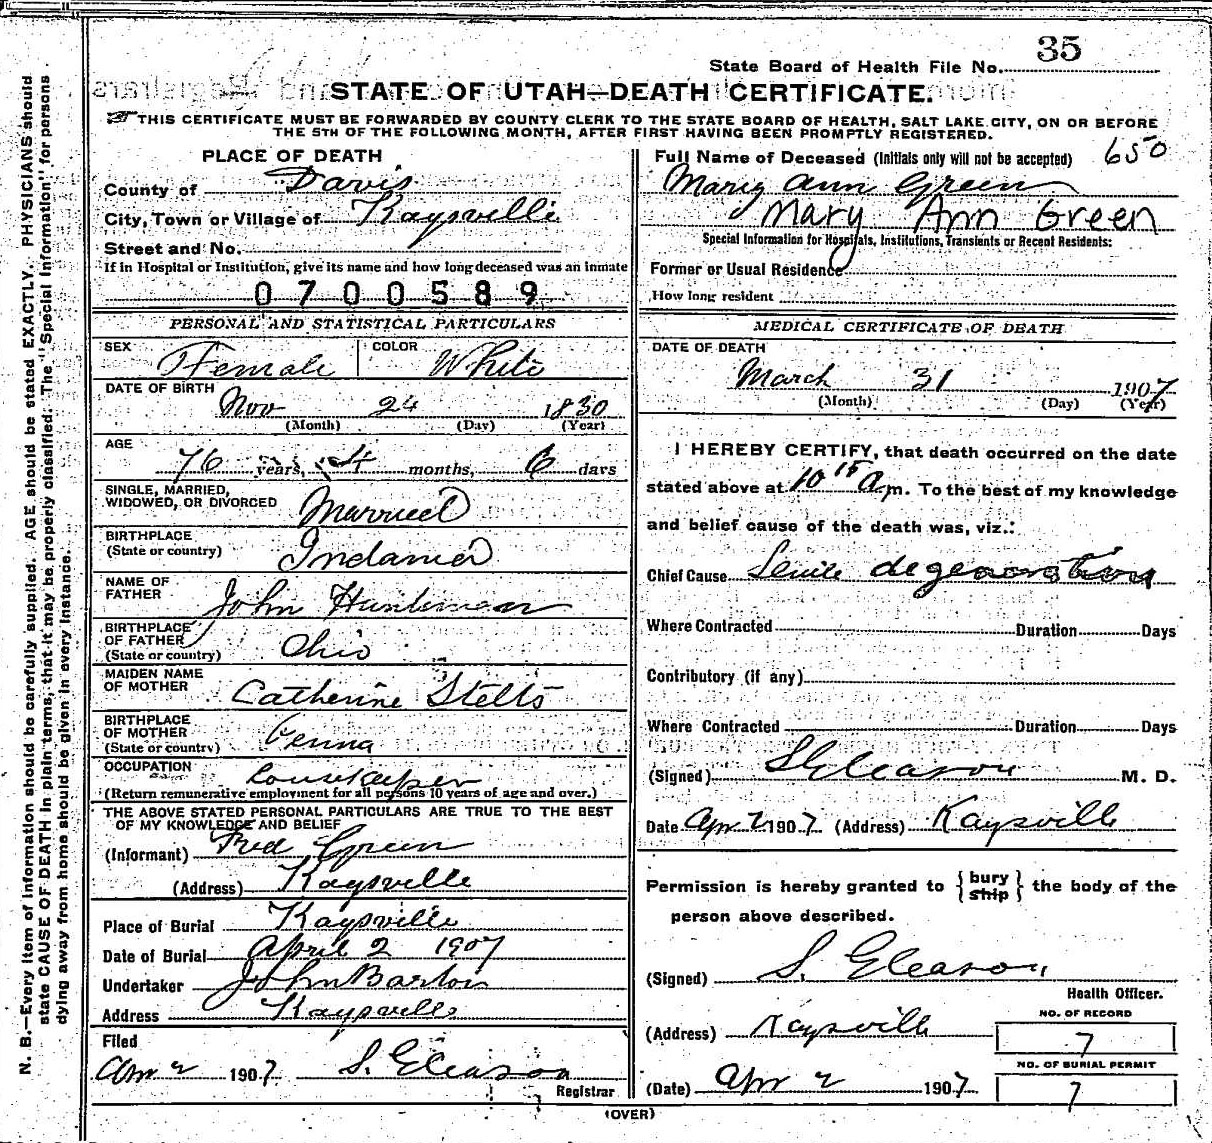 35
State Board of Health File No.
STATE OF UTAH—DEATH CERTIFICATE.
THIS CERTIFICATE MUST BE FORWARDED BY COUNTY CLERK TO THE STATE BOARD OF HEALTH, SALT LAKE CITY, ON OR BEFORE
THE 5TH OF THE FOLLOWING MONTH, AFTER FIRST HAVING BEEN PROMPTLY REGISTERED.
PLACE OF DEATH
County of Davis
City, Town or Village of Kaysville
Street and No.
If in Hospital or Institution, give its name and how long deceased was an inmate
0700589
PERSONAL AND STATISTICAL PARTICULARS
SEX Female COLOR White
DATE OF BIRTH
Nov 24 1830
(Month) (Day) (Year)
AGE
76 years, 4 months, 6 days
SINGLE, MARRIED,
WIDOWED, OR DIVORCED Married
BIRTHPLACE
(State or country) Indiana
NAME OF
FATHER John Huntsman
BIRTHPLACE
OF FATHER
(State or country) Ohio
MAIDEN NAME
OF MOTHER Catherine Stelts
BIRTHPLACE
OF MOTHER
(State or country) Penna
OCCUPATION Housekeeper
(Return remunerative employment for all persons 10 years of age and over.)
THE ABOVE STATED PERSONAL PARTICULARS ARE TRUE TO THE BEST
OF MY KNOWLEDGE AND BELIEF
(Informant) Fred Green
(Address) Kaysville
Place of Burial Kaysville
Date of Burial April 2 1907
Undertaker John Barton
Address Kaysville
Filed
Apr 2 1907 S. Gleason
Registrar
Full Name of Deceased (Initials only will not be accepted) 650
Mary Ann Green
Mary Ann Green
Special Information for Hospitals, Institutions, Transients or Recent Residents:
Former or Usual Residence
How long resident
MEDICAL CERTIFICATE OF DEATH
DATE OF DEATH
March 31 1907
(Month) (Day) (Year)
I HEREBY CERTIFY, that death occurred on the date
stated above at 10 15 a.m. To the best of my knowledge
and belief cause of the death was, viz.:
Chief Cause Senile degeneration
Where Contracted Duration Days
Contributory (if any)
Where Contracted Duration Days
(Signed) S Gleason M. D.
Date Apr 2 1907 (Address) Kaysville
Permission is hereby granted to { bury ship } the body of the
person above described.
(Signed) S. Gleason
Health Officer.
(Address) Kaysville
NO. OF RECORD
7
NO. OF BURIAL PERMIT
(Date) Apr 2 1907 7
(OVER)
N. B.—Every item of information should be carefully supplied. AGE should be stated EXACTLY. PHYSICIANS should
state CAUSE OF DEATH in plain terms, that it may be properly classified. The "Special Information" for persons
dying away from home should be given in every instance.